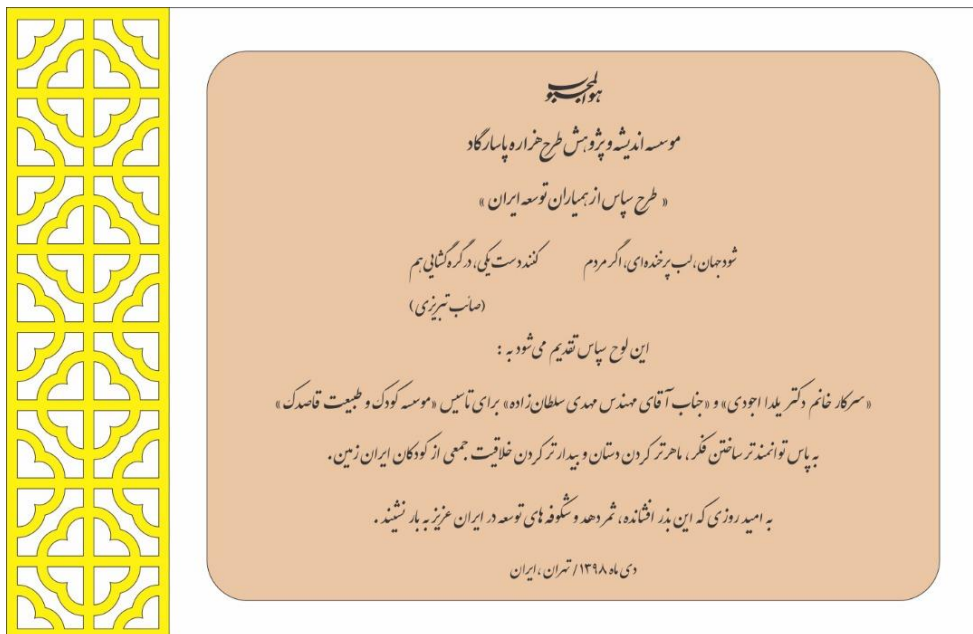 هوالمحبوب
موسسه اندیشه و پژوهش طرح هزاره پاسارگاد
« طرح سپاس از همیاران توسعه ایران »
شود جهان، لب پرخنده‌ای، اگر مردم کنند دست یکی، در گره گشایی هم
(صائب تبریزی)
این لوح سپاس تقدیم می‌شود به :
«سرکار خانم دکتر یلدا اجودی» و «جناب آقای مهندس مهدی سلطان‌زاده» برای تاسیس «موسسه کودک و طبیعت قاصدک»
به پاس توانمندتر ساختن فکر، ماهرتر کردن دستان و بیدارتر کردن خلاقیت جمعی از کودکان ایران زمین.
به امید روزی که این بذر افشانده، ثمر دهد و شکوفه های توسعه در ایران عزیز به بار نشیند.
دی ماه ۱۳۹۸ / تهران، ایران